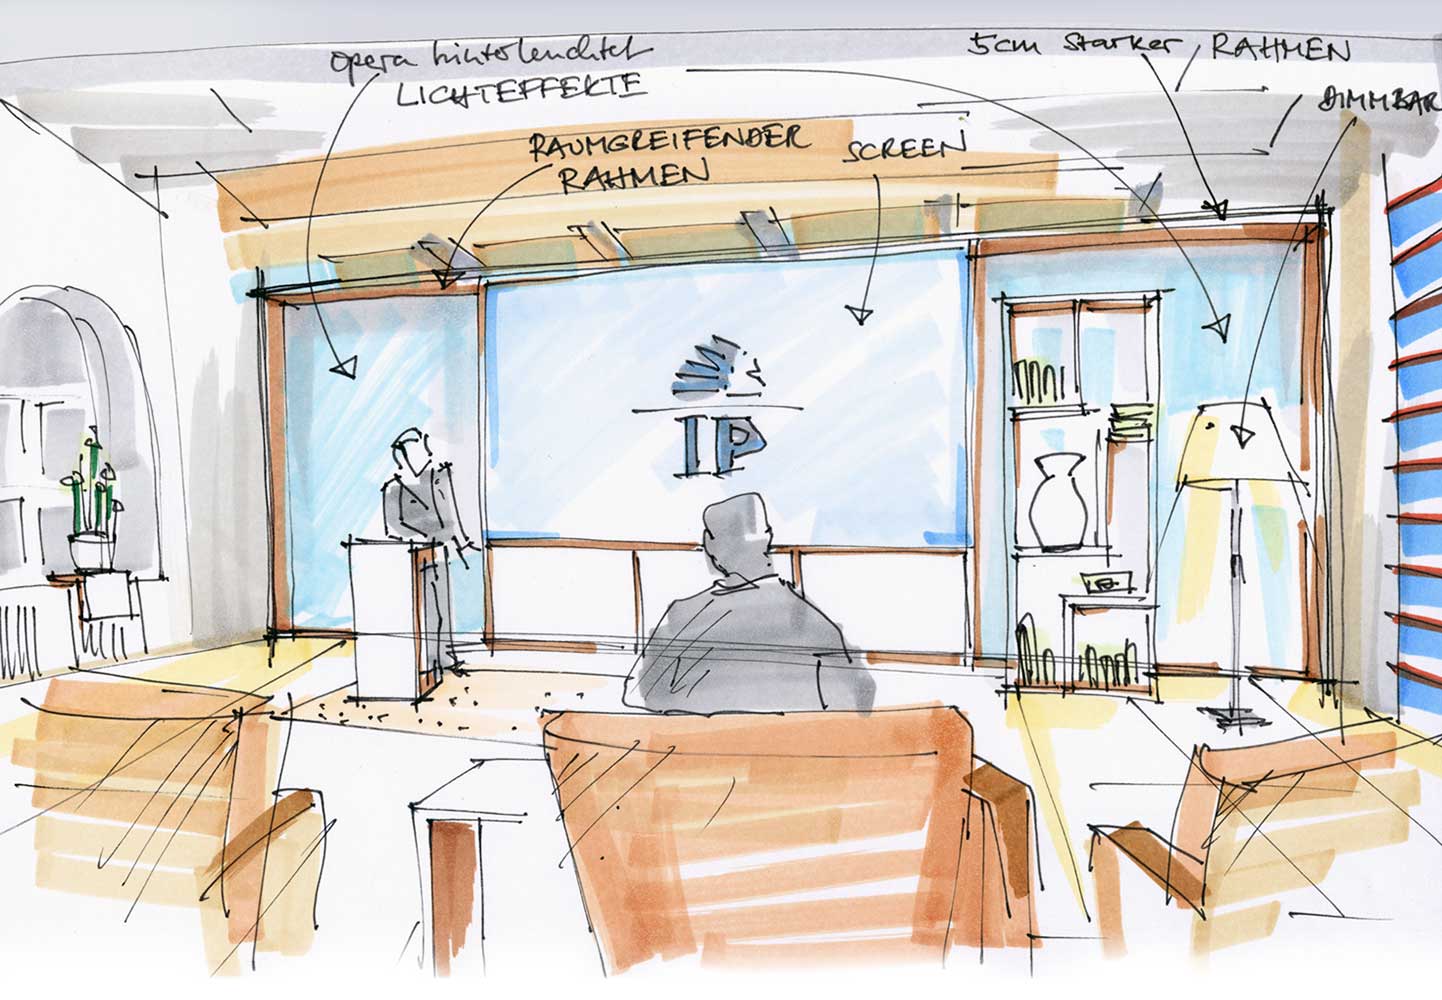 opera hinterleuchtet
LICHTEFFEKTE
5cm starker RAHMEN
DIMMBAR
RAUMGREIFENDER
RAHMEN
SCREEN
IP